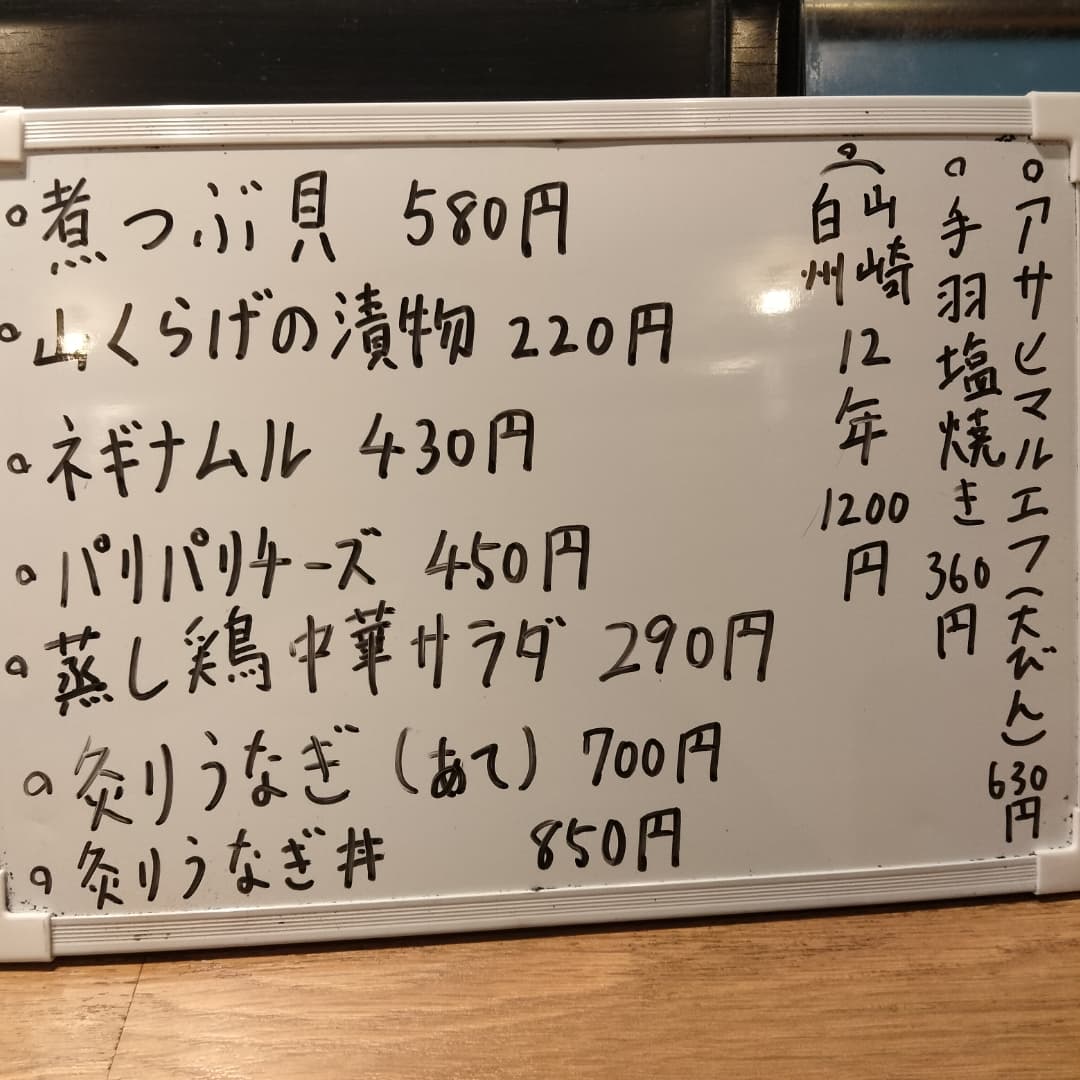 。煮つぶ貝 580円
。山くらげの漬物 220円
。ネギナムル 430円
。パリパリチーズ 450円
。蒸し鶏中華サラダ 290円
。炙りうなぎ(あて) 700円
。炙りうなぎ丼 850円
。アサヒマルエフ(大びん) 630円
。手羽塩焼き 360円
。山崎
白州
12年 1200円